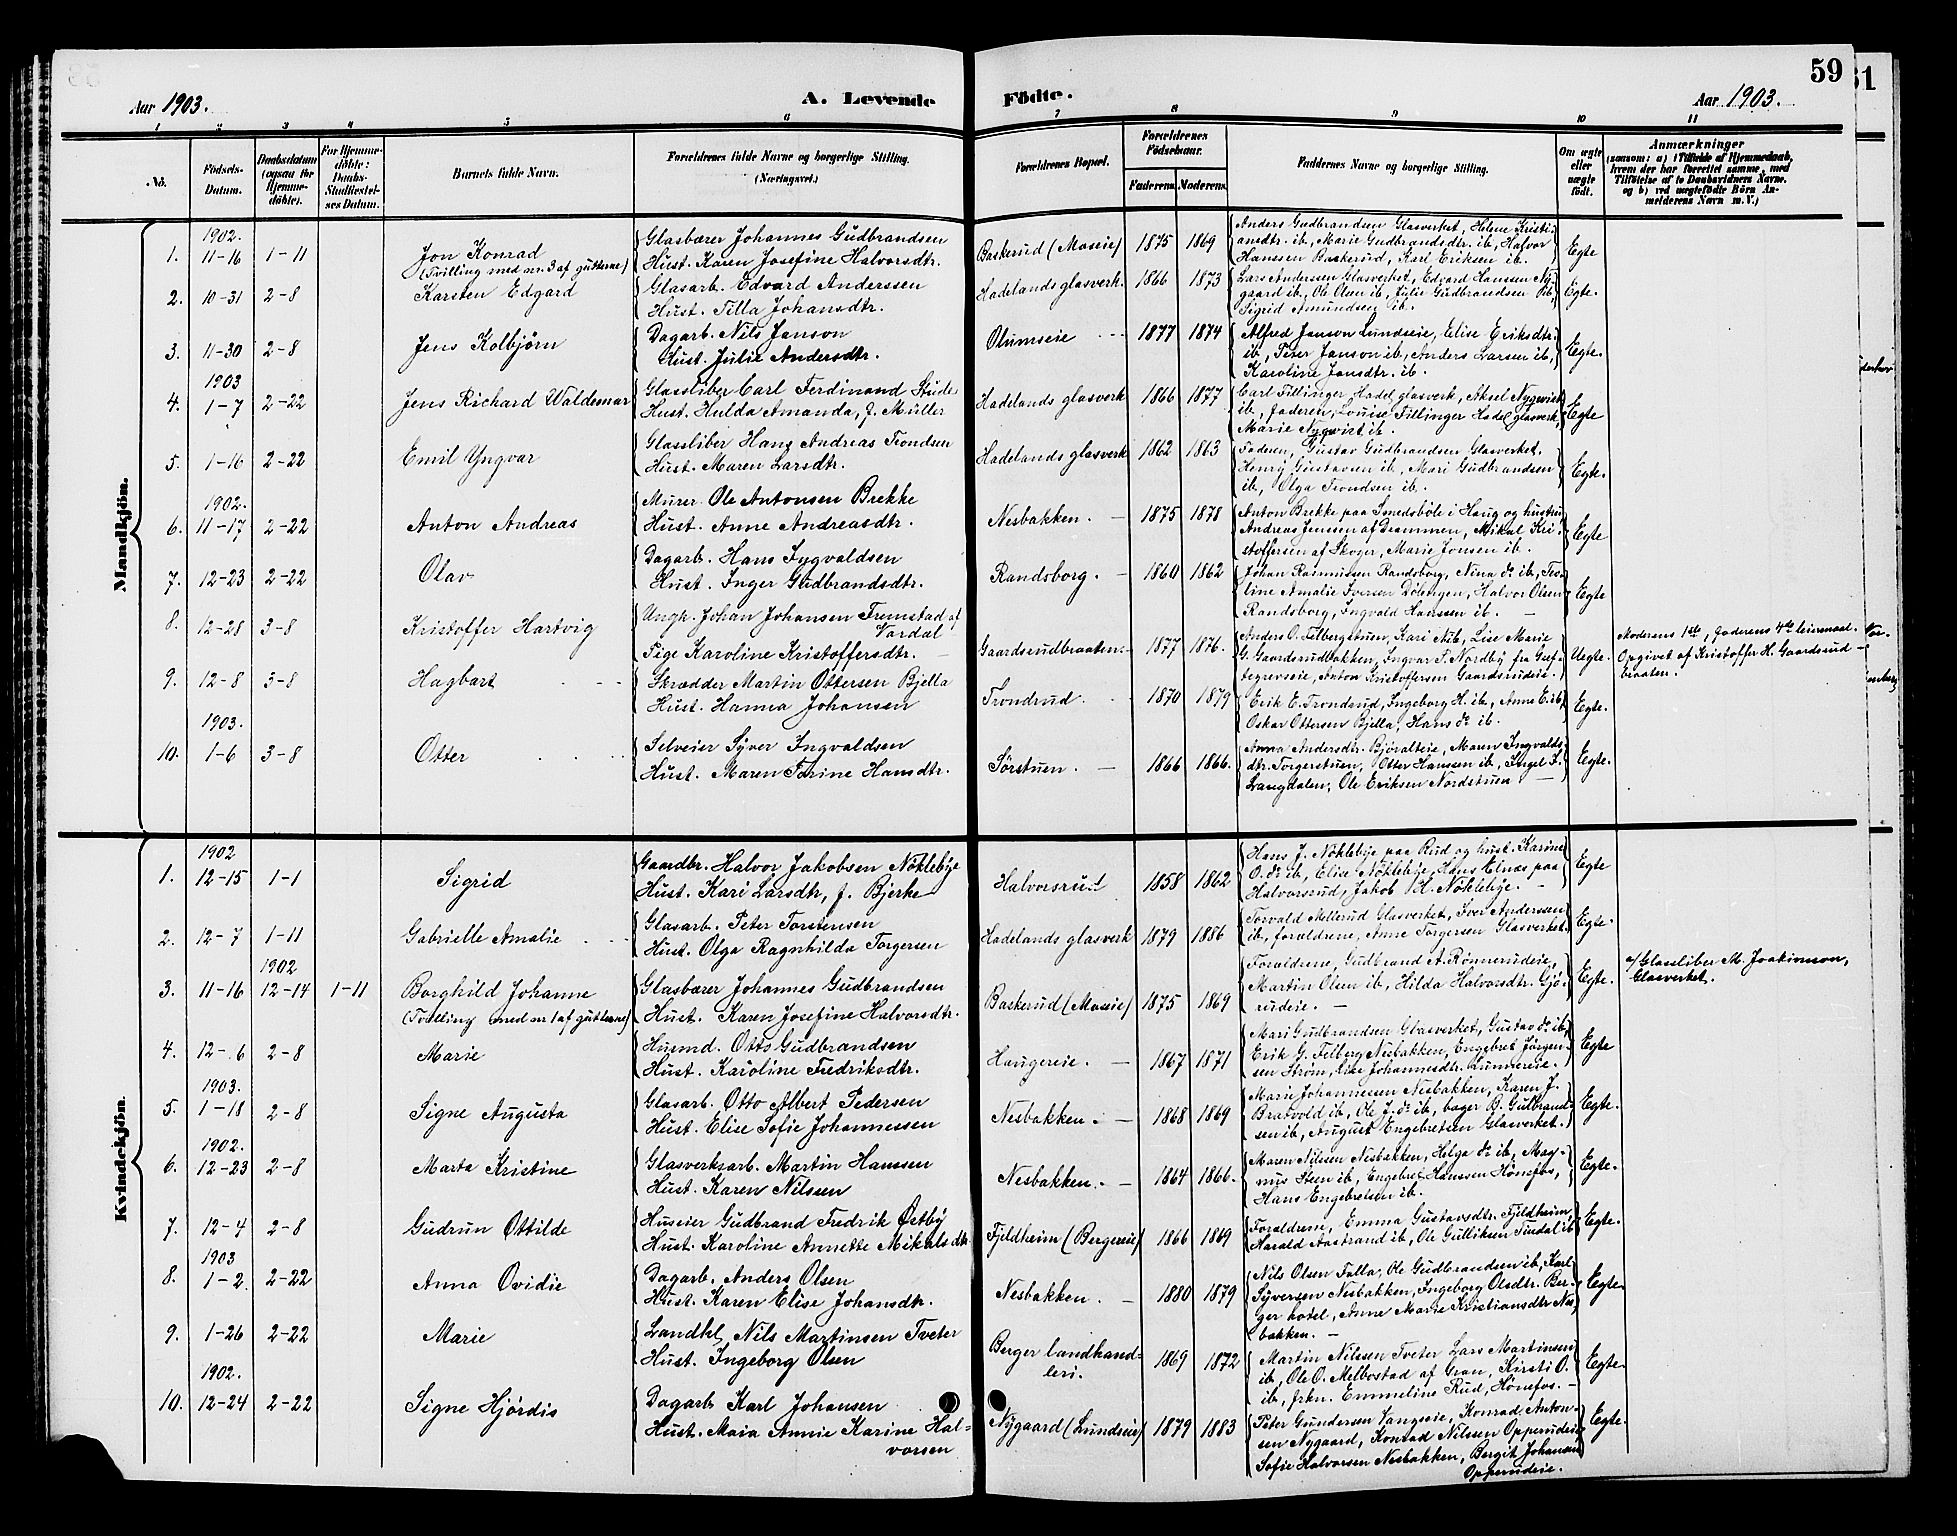 59
31
Aar 1903.
A. Levende Födte.
Aar 1903.
1 2 3 4 5 6 7 8 9 10 11
No.
Födsels-Datum.
Daabsdatum (ogsaa for Hjemmedöbte).
For Hjemmedöbte: Daabs-Stadfæstelses Datum.
Barnets fulde Navn.
Forældrenes fulde Navne og borgerlige Stilling. (Næringsvei.)
Forældrenes Bopæl.
Forældrenes Födselsaar.
Faderens. Moderens.
Faddernes Navne og borgerlige Stilling.
Om ægte eller uægte födt.
Anmærkninger
(saasom: a) i Tilfælde af Hjemmedaab, hvem der har forrettet samme, med Tilföielse af to Daabsvidners Navne, og b) ved uægtefödte Börn Anmelderens Navn m. V.)
Mandkjön.
1902.
1. 11-16 1-11 Jon Konrad
(Tvilling med nr. 3 af gutterne)
Glasbærer Johannes Gudbrandsen
Hust. Karen Josefine Halvorsdtr.
Baskerud (Moseie) 1875 1869
Anders Gudbrandsen Glasverket, Helene Kristi-
ansdtr. ib., Marie Gudbrandsdtr. ib., Halvor
Hanssen Baskerud, Karl Eriksen ib.
Egte
2. 10-31 2-8 Karsten Edgard
Glasarb. Edvard Anderssen
Hust. Tilla Johansdtr.
Hadelands glasverk. 1866 1873
Lars Anderssen Glasverket, Edvard Hanssen Ny-
gaard ib., Ole Olsen ib., Julie Gudbrandsen ib.,
Sigrid Amundseie ib.
Egte.
3. 11-30 2-8 Jens Kolbjörn
Dagarb. Nils Jenson
Hust. Julie Andersdtr.
Olumseie 1877 1874
Alfred Janson Lundseie, Elise Eriksdtr.
ib., Peter Janson ib., Anders Larsen ib.,
Karoline Jonsdtr. ib.
Egte.
1903
4. 1-7 2-22 Jens Richard Waldemar
Glassliber Carl Ferdinand Stude
Hust. Hulda Amanda, f. Müller
Hadelands glasverk 1866 1877
Carl Tillinger Hadel. glasverk, Aksel Nyqvist
ib., faderen, Louise Tillinger Hadel. glasverk,
Marie Nyqvist ib.
Egte
5. 1-16 2-22 Emil Yngvar
Glassliber Hans Andreas Trondsen
Hust. Maren Larsdtr.
Hadelands glasverk 1862 1863
Faderen, Gustav Gudbrandsen Glasverket,
Henry Gustavsen ib., Mari Gudbrandsen
ib., Olga Trondsen ib.
Egte.
1902.
6. 11-17 2-22 Anton Andreas
Murer Ole Antonsen Brekke
Hust. Anne Andreasdtr.
Nesbakken. 1875 1878
Anton Brekke paa Smedsböle i Haug og hustru
Andreas Jensen af Drammen, Mikal Kri-
stoffersen af Skoger, Marie Jonsen ib.
Egte
7. 12-23 2-22 Olav
Dagarb. Hans Ingvaldsen
Hust. Inger Gudbrandsdtr.
Randsborg. 1860 1862
Johan Rasmussen Randsborg, Nina do ib., Teo-
line Amalie Iversen Dölengen, Halvor Olsen
Randsborg, Ingvald Hanssen ib.
Egte
8. 12-28 3-8 Kristoffer Hartvig
Ungk. Johan Johansen Tremstad af
Vardal
Pige Karoline Kristoffersdtr.
Gaardsrudbraaten. 1877 1876.
Anders O. Felbergstuen, Kari A. ib., Lise Marie
G. Gaardsrudbakken, Ingvar T. Nordby fra Gef-
tegrevseie, Anton Kristoffersen Gaardsrudeie.
Uegte.
Moderens 1ste, faderens 4de leiermaal.
Opgivet af Kristoffer H. Gaardsrud-
braaten.
9. 12-8 3-8 Hagbart
Skrædder Martin Ottersen Bjella
Hust. Hanna Johansen
Trondrud 1870 1879
Erik E. Trondrud, Ingeborg H. ib., Anne E. ib.,
Oskar Ottersen Bjella, Hans do ib.
Egte.
1903.
10. 1-6 3-8 Otter
Selveier Syver Ingvaldsen
Hust. Maren Torine Hansdtr.
Sörstuen. 1866 1866.
Anna Andersdtr. Björalteie, Maren Ingvalds-
dtr. Torgerstuen, Otter Hanssen ib., Engel I.
Langdalen, Ole Eriksen Nordstuen
Egte.
Kvindekjön.
1902
1. 12-15 1-1 Sigrid
Gaardbr. Halvor Jakobsen Nöklebye
Hust. Kari Larsdtr, f. Bjerke
Halvorsrud 1858 1862
Hans J. Nöklebye paa Rud og hust. Karine
O. do ib., Elise Nöklebye, Hans Elnæs paa
Halvorsrud, Jakob H. Nöklebye.
Egte
2. 12-7 1-11 Gabrielle Amalie
Glasarb. Peter Torstensen
Hust. Olga Ragnhilda Torgersen
Hadelands glasverk 1879 1886
Torvald Mellerud Glasverket, Iver Anderssen
ib., forældrene, Anne Torgersen Glasverket.
Egte.
1902
3. 11-16 12-14 1-11 Borghild Johanne
(Tvilling med nr 1 af gutterne)
Glasbærer Johannes Gudbrandsen
Hust. Karen Josefine Halvorsdtr.
Baskerud (Moseie) 1875 1869
Forældrene, Gudbrand A. Rönnerudeie,
Martin Olsen ib., Hilda Halvorsdtr. Gjö-
rudeie.
Egte.
a/ Glassliber M. Joakimson,
Glasverket.
4. 12-6 2-8 Marie
Husmd. Otto Gudbrandsen
Hust. Karoline Fredriksdtr.
Haugereie. 1867 1871
Mari Gudbrandsen Glasverket, Gustav do ib.,
Erik G. Felberg Nesbakken, Engebret Jörgen-
sen Ström, Like Johannesdtr. Lunnereie.
Egte
1903.
5. 1-18 2-8 Signe Augusta
Glasarb. Otto Albert Pedersen
Hust. Elise Sofie Johannessen
Nesbakken. 1868 1869
Marie Johannessen Nesbakken, Karen J.
Bratvold ib., Ole J. do ib., bager B. Gulbrand-
sen ib., August Engebretsen Glasverket.
Egte.
1902.
6. 12-23 2-8 Marta Kristine
Glasverksarb. Martin Hanssen
Hust. Karen Nilssen
Nesbakken. 1864 1866.
Maren Nilsen Nesbakken, Helga do ib., Mag-
nus Steen ib., Engebret Hanssen Hönefos,
Hans Engebretsen ib.
Egte.
7. 12-4 2-8 Gudrun Ottilde
Huseier Gudbrand Fredrik Östby
Hust. Karoline Annette Mikalsdtr
Fjeldheim (Bergereie) 1866 1869
Forældrene, Emma Gustavsdtr. Fjeldheim,
Harald Aastrand ib., Ole Gulliksen Tindal ib.
Egte.
1903
8. 1-2 2-22 Anna Ovidie
Dagarb. Anders Olsen
Hust. Karen Elise Johansdtr.
Nesbakken. 1880 1879
Nils Olsen Falla, Ole Gudbrandsen ib., Karl
Syversen Nesbakken, Ingeborg Olsdtr. Ber-
ger hotel, Anne Marie Kristiansdtr Nes-
bakken.
Egte.
9. 1-26 2-22 Marie
Landhl. Nils Martinsen Tveter
Hust. Ingeborg Olsen
Berger landhand-
leri. 1869 1872
Martin Nilsen Tveter Lars Martinsen
ib., Ole O. Melbostad af Gran, Kirsti O.
ib., frkn. Emmeline Rud, Hönefos.
Egte.
1902.
10. 12-24 2-22 Signe Hjördis
Dagarb Karl Johansen
Hust. Maia Annie Karine Hal-
vorsen
Nygaard (Lundseie) 1879 1883
Peter Gundersen Vangseie, Konrad Anton-
sen Nygaard, Konrad Nilsen Opperudeie
Sofie Halvorsen Nesbakken, Bergit Johansen
Opperudeie.
Egte.